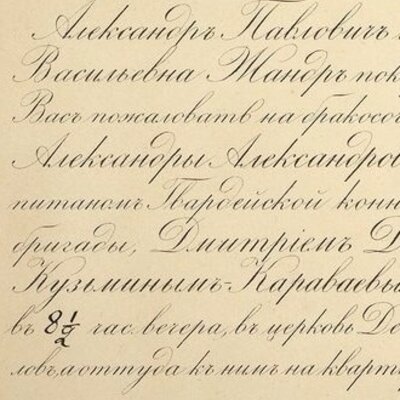 Александръ Павловичъ
Васильевна Жандръ пок
Васъ пожаловать на бракосоч
Александры Александров
питаномъ Гвардейской конн
бригады, Дмитріемъ Д
Кузьминымъ-Караваевы
въ 8½ час. вечера, въ церковь До
ловъ, а оттуда къ нимъ на кварти